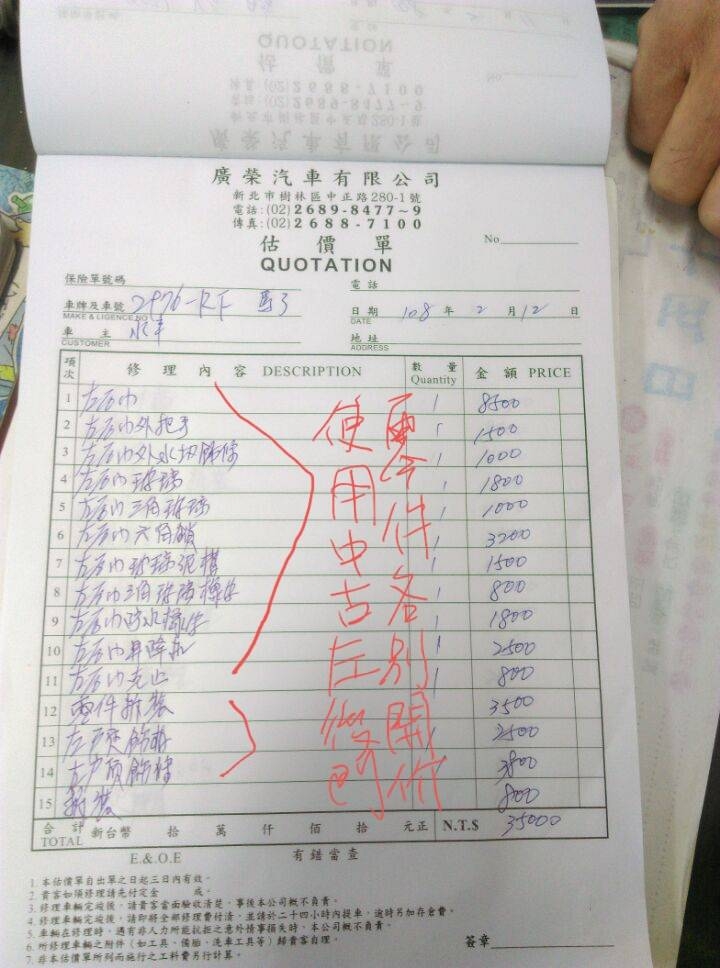 廣榮汽車有限公司
新北市樹林區中正路280-1號
電話:(02)2689-8477~9
傳真:(02)2688-7100
估價單
QUOTATION
No
保險單號碼
電話
車牌及車號 2976-RF 馬3
MAKE & LIGENCE NO
日期 108 年 2 月 12 日
DATE
車主
CUSTOMER
地址
ADDRESS
項次 修理內容 DESCRIPTION 數量 Quantity 金額 PRICE
1 左后巾 1 8500
2 左后巾外把手 1 1500
3 左后巾外水切飾條 1 1000
4 左后巾玻璃 1 1800
5 左后巾三角玻璃 1 1000
6 左后巾六角鎖 1 3200
7 左后巾玻璃泥槽 1 1500
8 左后巾三角玻璃 1 800
9 左后巾防水 1 1800
10 左后巾昇降机 1 2500
11 左后巾 1 800
12 零件拆裝 3500
13 左 1 2500
14 3800
15 800
使用中古
零件各別開价
合計 新台幣 拾 萬 仟 佰 拾 元正 N.T.$ 35000
TOTAL
E.&O.E 有錯當查
1. 本估價單自出單之日起三日內有效。
2. 貴客如須修理請先付定金 成。
3. 修理車輛完竣後，請貴客當面驗收清楚，事後本公司概不負責。
4. 修理車輛完竣後，請即將全部修理費付清，並請於二十四小時內提車，逾時另加存倉費。
5. 車輛在修理時，遇有非人力所能抗拒之意外情事損失時，本公司概不負責。
6. 所修理車輛之附件（如工具、備胎、洗車工具等）歸貴客自理。
7. 非本估價單所列而施行之工料費另行計算。
簽章